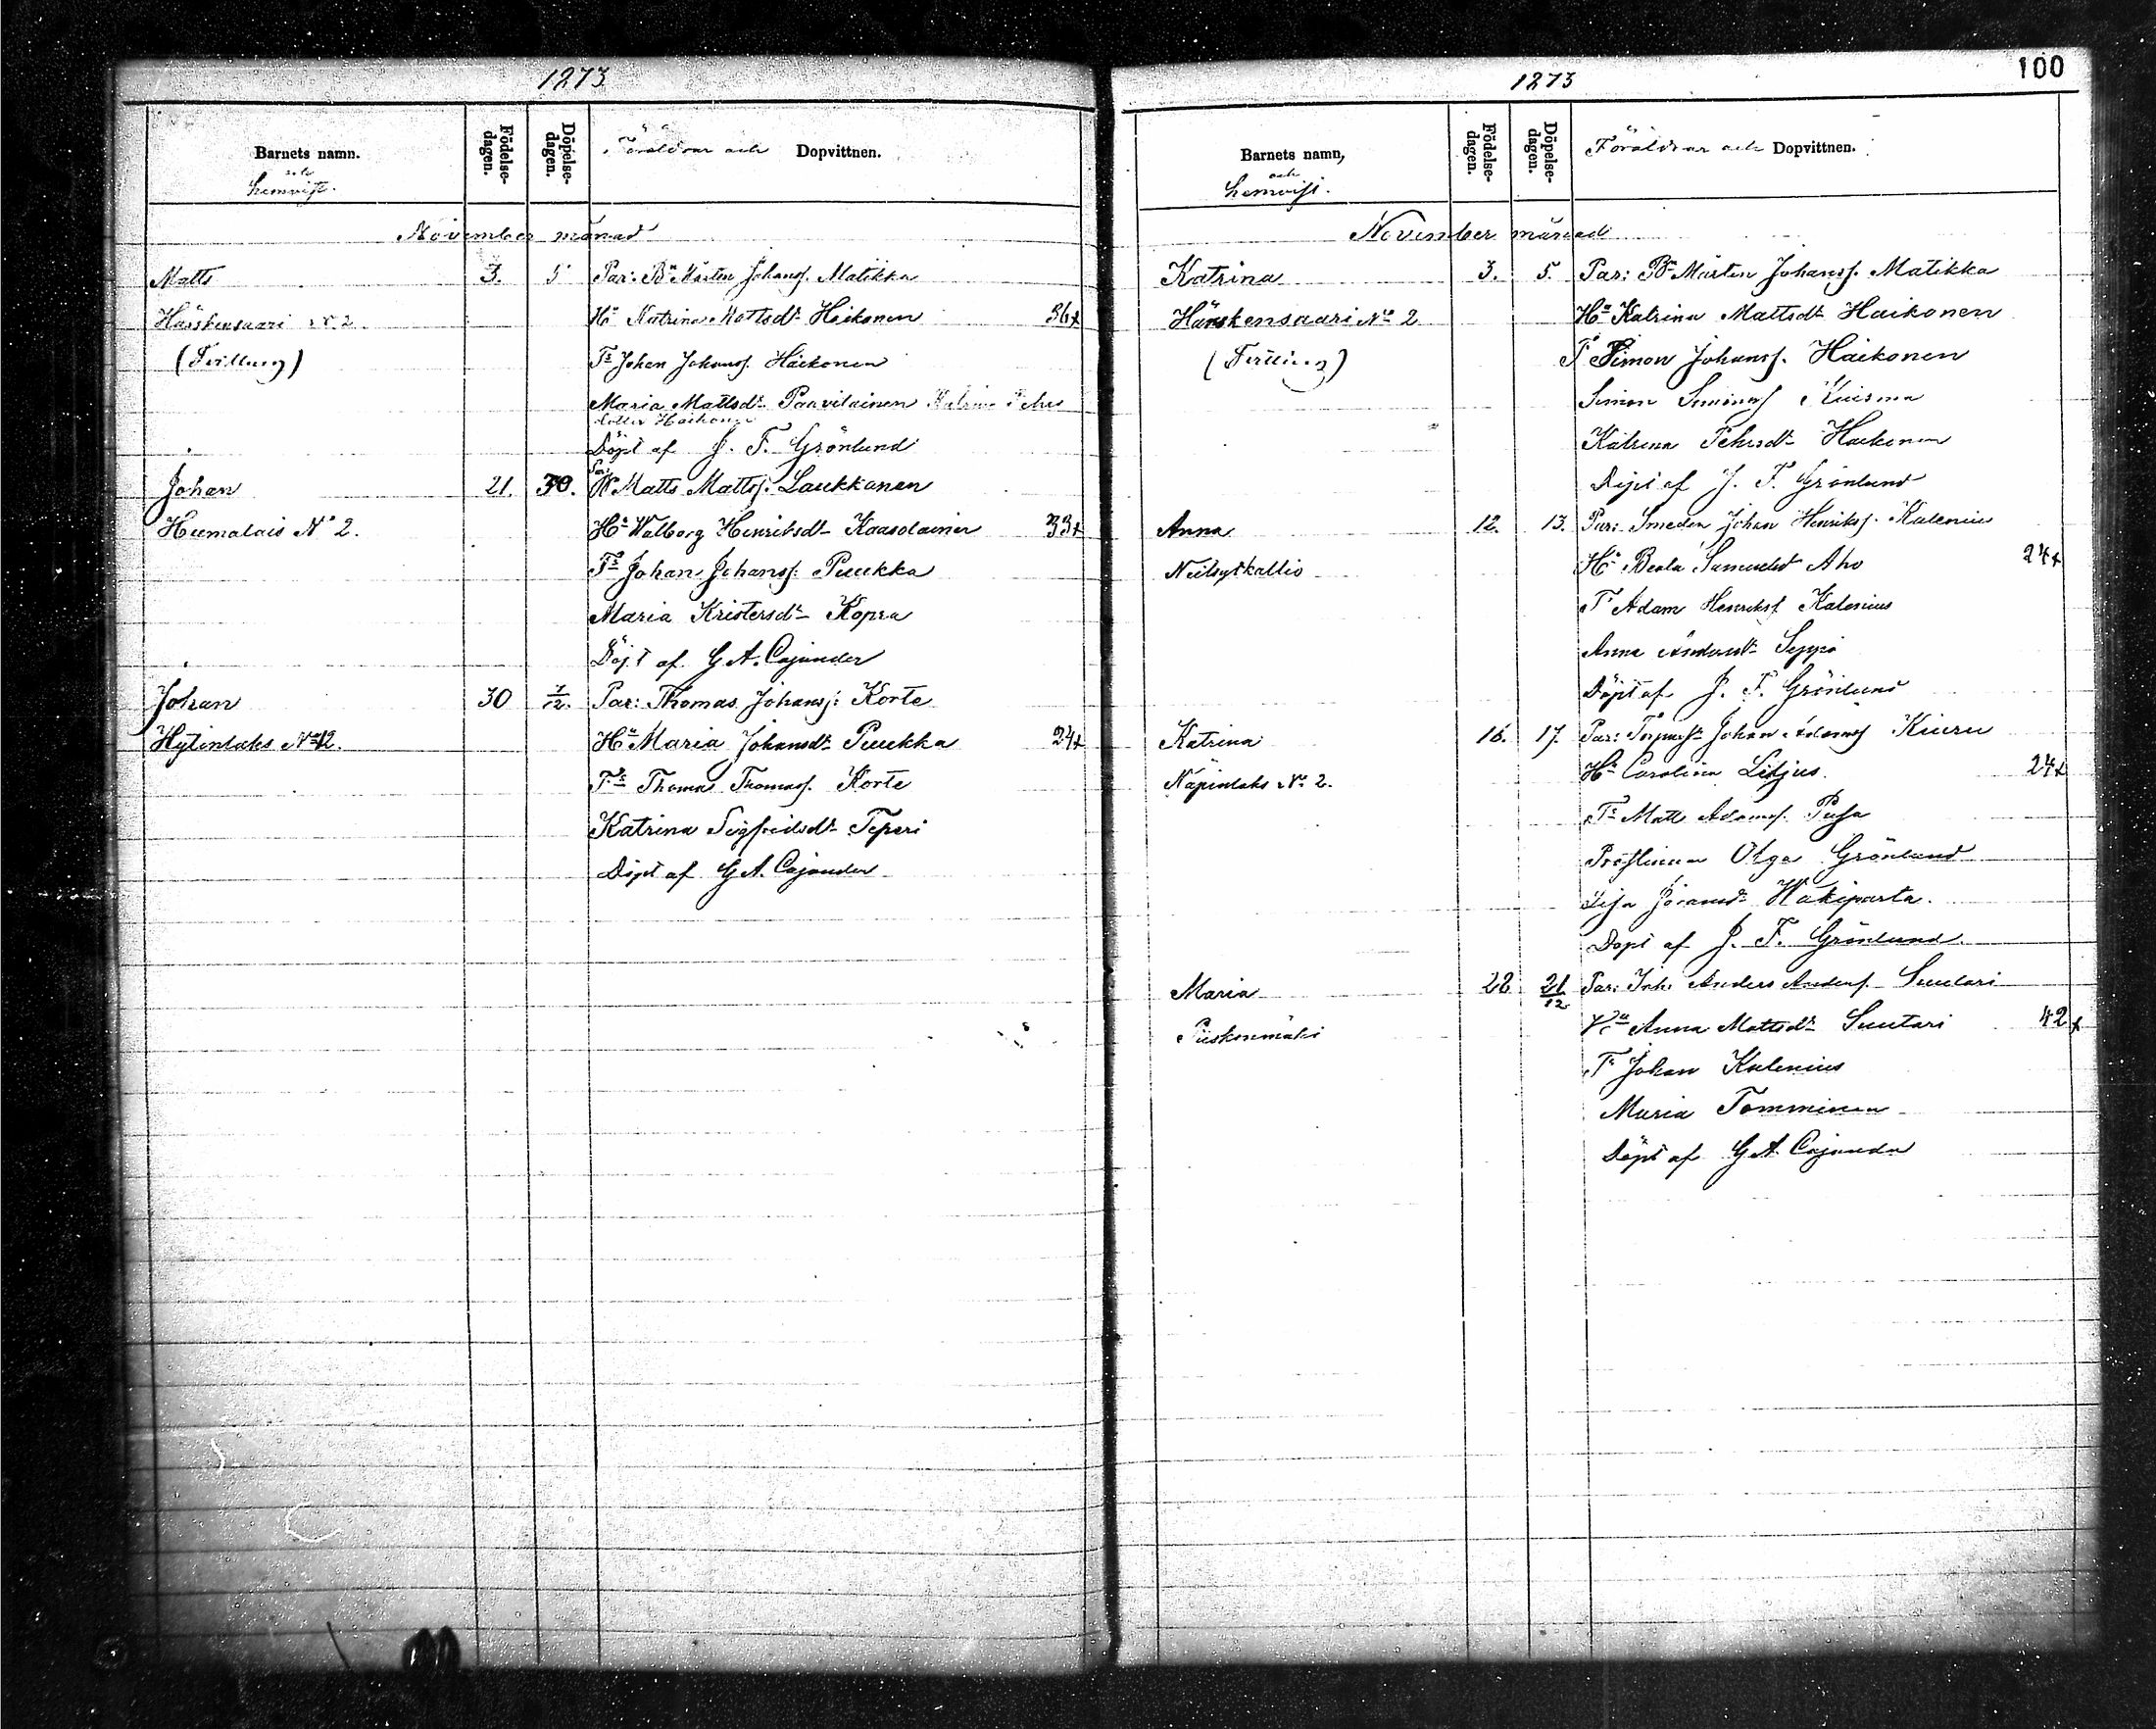 1873
Barnets namn.
och
hemvist.
Födelse-
dagen.
Döpelse-
dagen.
Föräldrar och Dopvittnen.
November månad
Matts 3. 5 Par: Bn Mårten Johanss. Matikka
Hänskensaari No 2. Hu Katrina Mattsdr Haikonen 36
(Tvilling) Ts Johan Johanss. Haikonen
Maria Mattsdr Paavilainen Katrina Pehrs
dotter Haikonen
Döpt af J. F. Grönlund
Par:
Johan 21. 30. Matts Mattss. Laukkanen
Humalais No 2. Hu Walborg Henriksdr Kaasolainen 33
Ts Johan Johanss. Puukka
Maria Kristersdr Kopra
Döpt af G A. Cajander
Johan 30 1/12. Par: Thomas Johanss: Korte
Hytinlaks No 12. Hu Maria Johansdr Puukka 24
Ts Thomas Thomass. Korte
Katrina Sigfridsdr Teperi
Döpt af G A. Cajander
1873
100
Barnets namn,
och
hemvist.
Födelse-
dagen.
Döpelse-
dagen.
Föräldrar och Dopvittnen.
November månad
Katrina 3. 5. Par: Bn Mårten Johanss. Matikka
Hänskensaari No 2 Hu Katrina Mattsdr Haikonen
(Tvilling) T Simon Johanss. Haikonen
Simon Simonss Kuisma
Katrina Pehrsdr Haikonen
Döpt af J. F. Grönlund
Anna 12. 13. Par: Smeden Johan Henrikss. Kalenius
Neitsytkallio Hu Beata Samuelsdr Aho 24
T Adam Henrikss Kalenius
Anna Andersdr Seppä
Döpt af J. F. Grönlund
Katrina 16. 17. Par: Johan Adamss Kiuru
Näpinlaks No 2. Hu Carolina Litjus. 24
Ts Matts Adamss. Pusa
Olga Grönlund
Lisa Göransdr Hakiparta.
Döpt af J. F. Grönlund.
Maria 28 21/12 Par: Inh. Anders Anderss. Suutari
Piiskonmäki Hu Anna Mattsdr Suutari 42
T Johan Kalenius
Maria Tomminen
Döpt af G A. Cajander